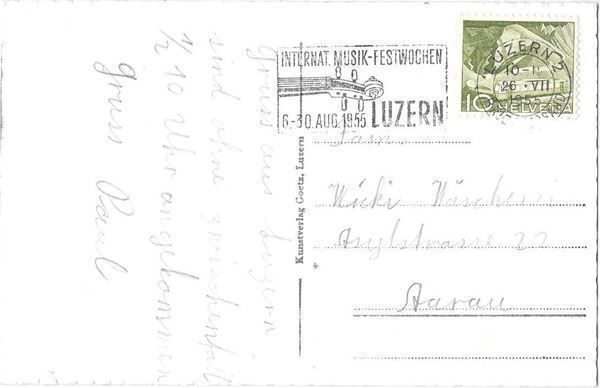 Gruss aus Luzern
sind ohne zwischenfall
1/2 10 Uhr angekommen
Gruss Paul
INTERNAT. MUSIK-FESTWOCHEN
6.-30. AUG. 1955 LUZERN
LUZERN 2
10-
26 VII
10 HELVETIA
Kunstverlag Goetz, Luzern
Fam.
Wicki Wäscherei
Asylstrasse 22
Aarau